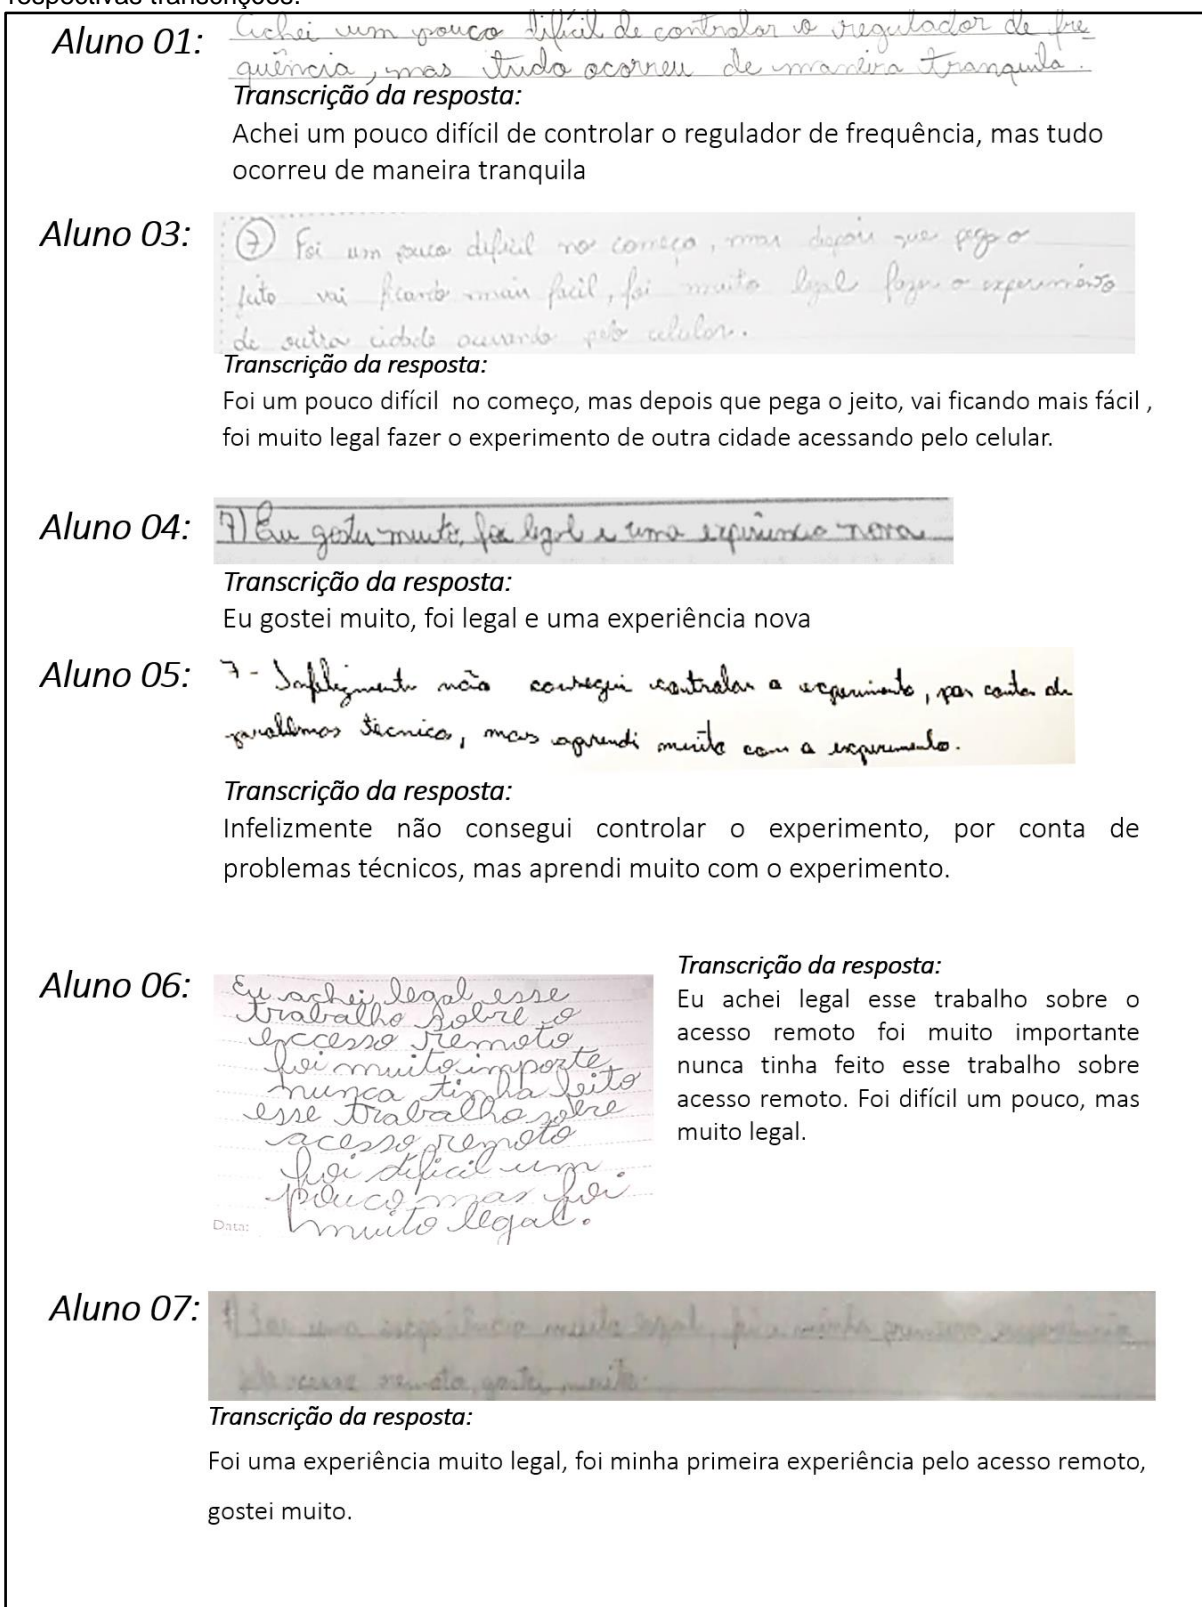 respectivas transcrições.
Aluno 01:
Achei um pouco difícil de controlar o regulador de fre
quência, mas tudo ocorreu de maneira tranquila.
Transcrição da resposta:
Achei um pouco difícil de controlar o regulador de frequência, mas tudo
ocorreu de maneira tranquila
Aluno 03:
7 Foi um pouco difícil no começo, mas depois que pega o
jeito vai ficando mais facil, foi muito legal fazer o experimento
de outra cidade acessando pelo celular.
Transcrição da resposta:
Foi um pouco difícil no começo, mas depois que pega o jeito, vai ficando mais fácil ,
foi muito legal fazer o experimento de outra cidade acessando pelo celular.
Aluno 04:
7) Eu gostei muito, foi legal e uma experiencia nova
Transcrição da resposta:
Eu gostei muito, foi legal e uma experiência nova
Aluno 05:
7- Infelizmente não consegui controlar o experimento, por conta de
problemas técnicos, mas aprendi muito com o experimento.
Transcrição da resposta:
Infelizmente não consegui controlar o experimento, por conta de
problemas técnicos, mas aprendi muito com o experimento.
Aluno 06:
Eu achei legal esse
trabalho sobre o
accesso remoto
foi muito importe
nunca tinha feito
esse trabalho sobre
acesso remoto
foi dificil um
pouco mas foi
muito legal.
Data:
Transcrição da resposta:
Eu achei legal esse trabalho sobre o
acesso remoto foi muito importante
nunca tinha feito esse trabalho sobre
acesso remoto. Foi difícil um pouco, mas
muito legal.
Aluno 07:
Foi uma experiência muito legal, foi minha primeira experiência
pelo acesso remoto, gostei muito.
Transcrição da resposta:
Foi uma experiência muito legal, foi minha primeira experiência pelo acesso remoto,
gostei muito.